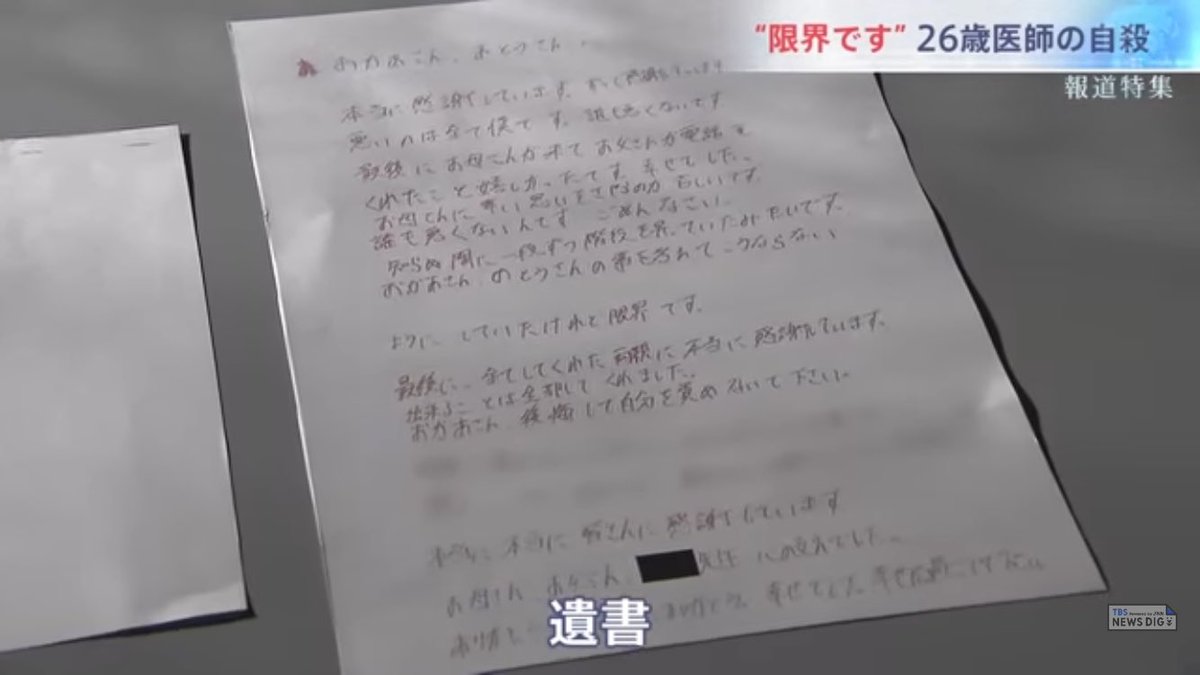 “限界です” 26歳医師の自殺
報道特集
おかあさん、おとうさん、
本当に感謝しています。
悪いのは全て僕です。誰も悪くないです
最後にお母さんが来てお父さんが電話を
くれたこと嬉しかったです。幸せでした。
お母さんに辛い思いをさせるのが苦しいです。
誰も悪くないんです ごめんなさい。
知らぬ間に一段ずつ階段を昇っていたみたいです。
おかあさん、おとうさんの事を考えてこうならない
ように していたけれど限界です。
最後に、全てしてくれた両親に本当に感謝しています。
出来ることは全部してくれました。
おかあさん、後悔して自分を責めないで下さい。
本当に本当に皆さんに感謝しています
お母さん、お父さん、
先生
遺書
TBS
Powered by JNN
NEWS DIG